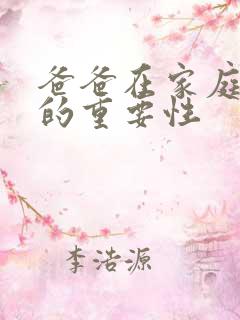 爸爸在家庭
的重要性
李浩源